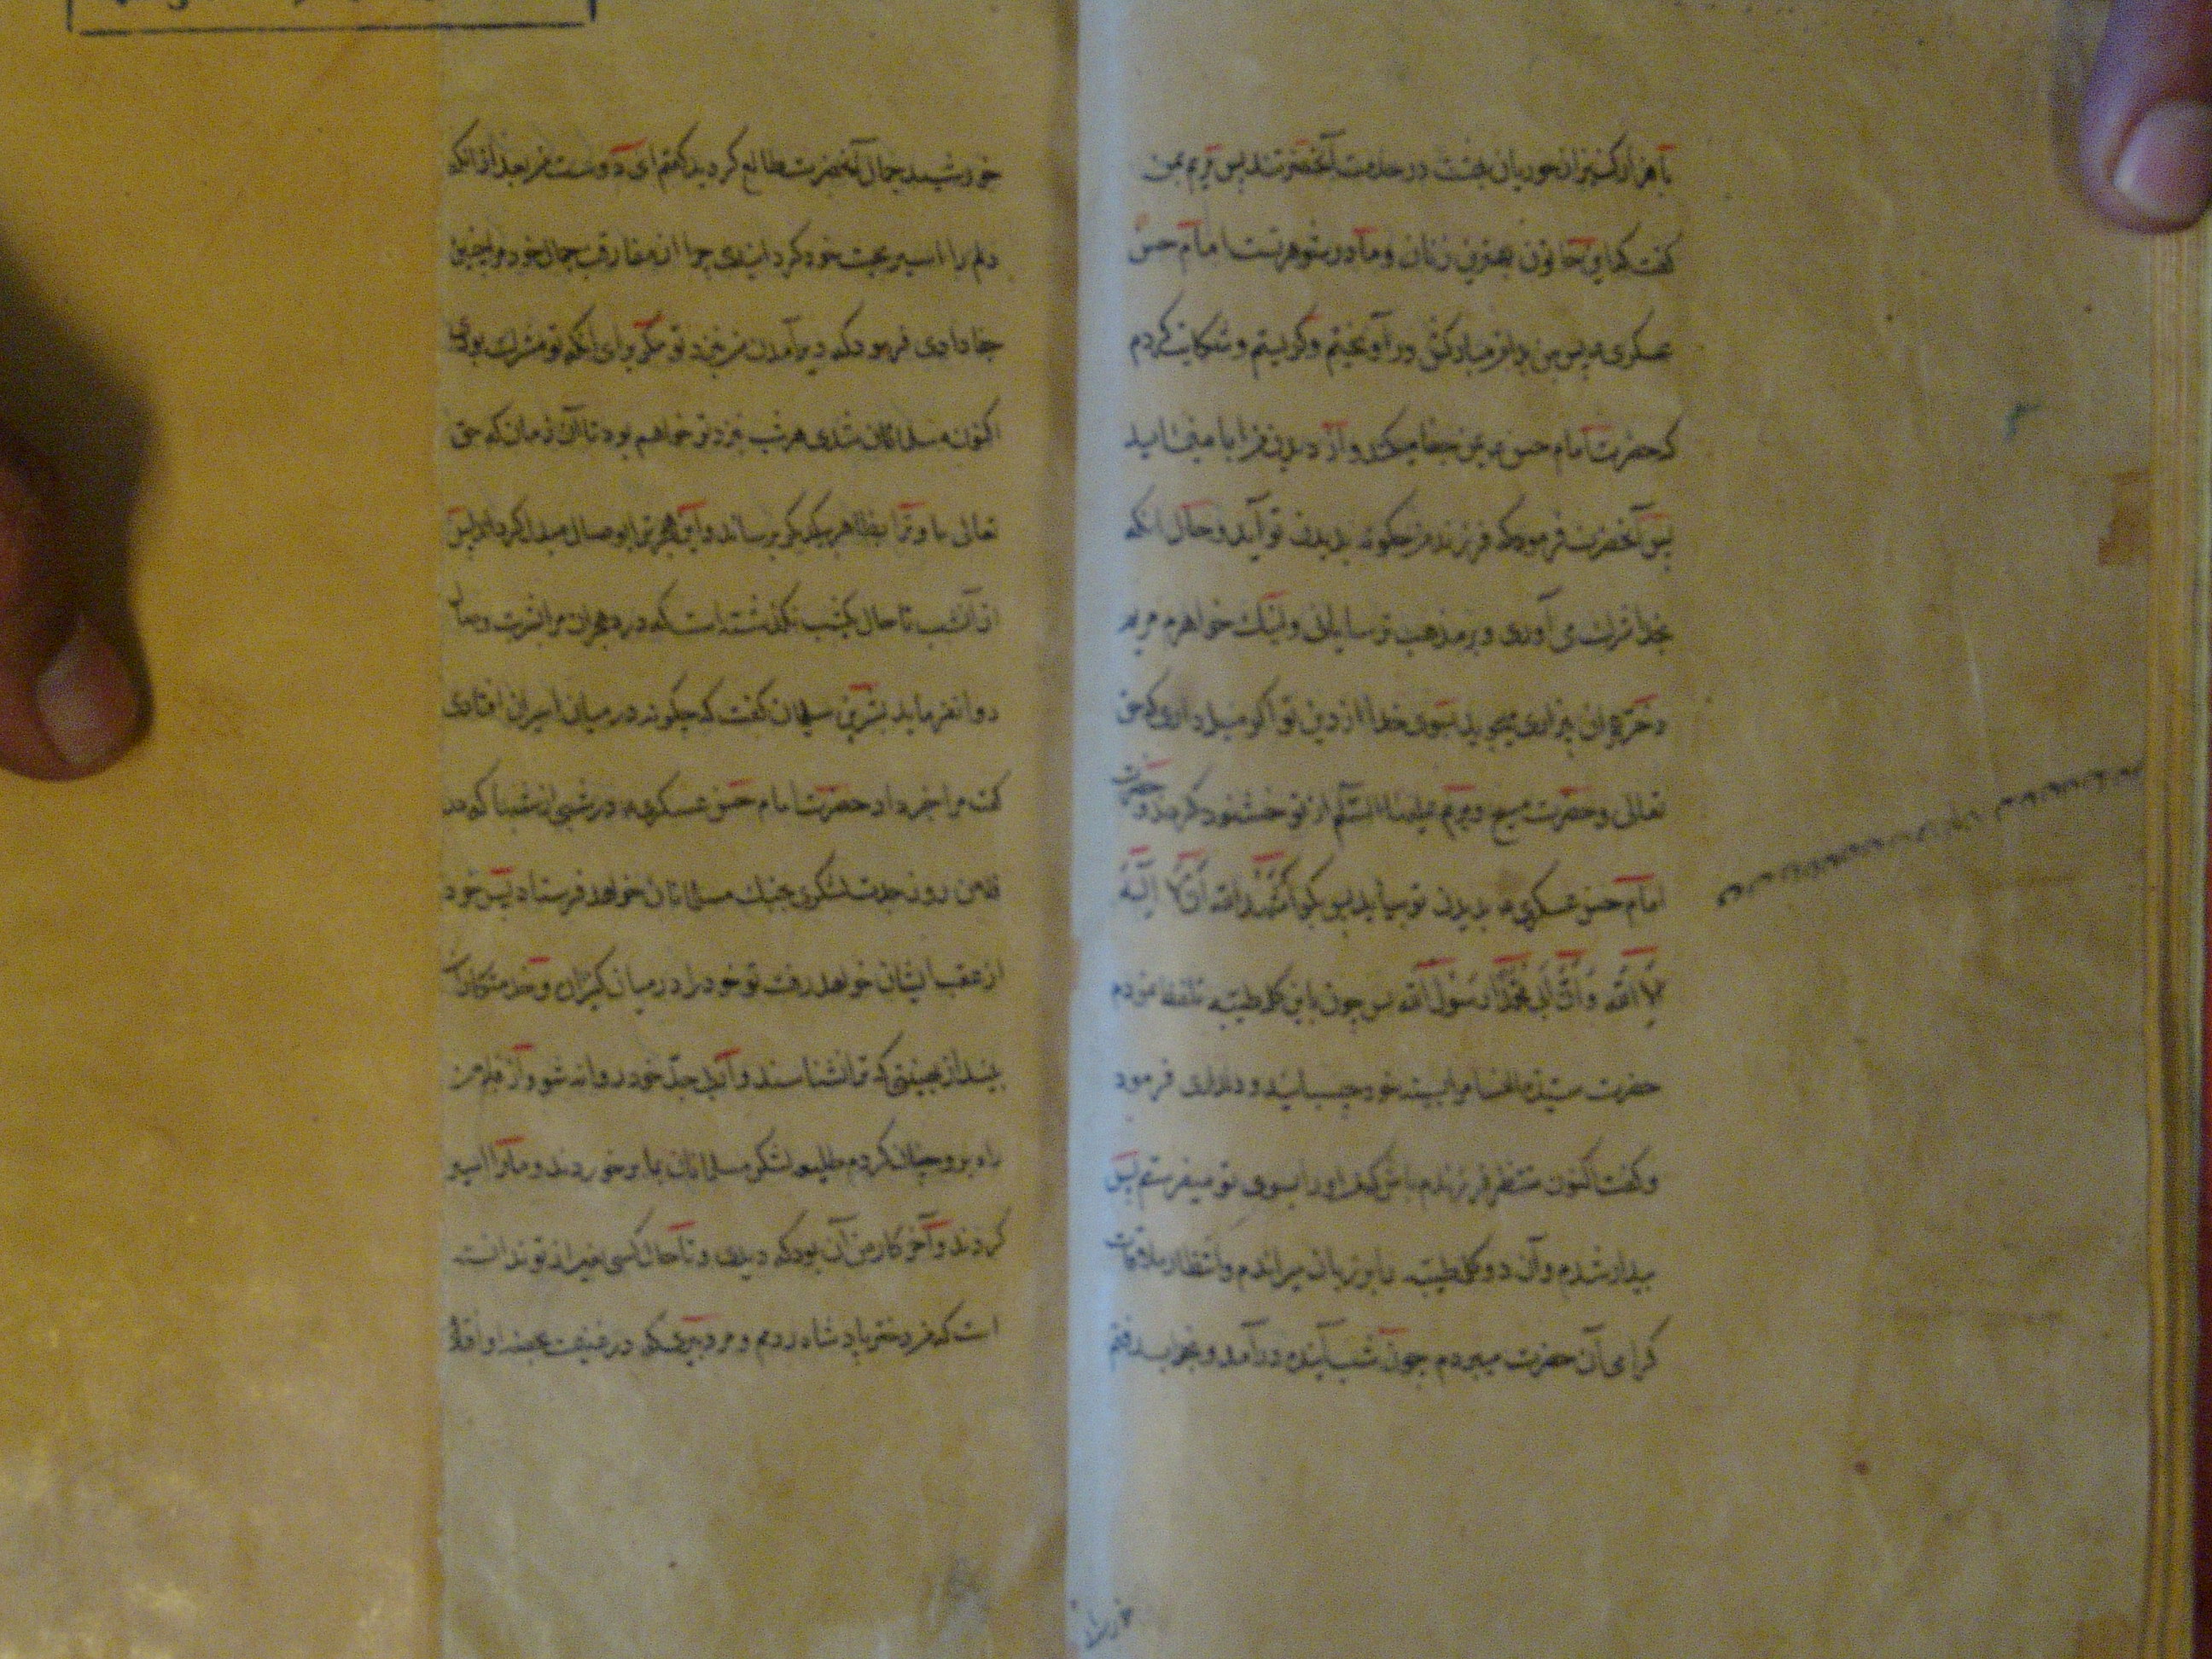 با هزار کنیز از حوریان بهشت در خدمت آنحضرتند پس مریم بمن
گفت که این خاتون بهترین زنان و مادر شوهرتست امام حسن
عسکری ع پس من بدامن مبارکش در آویختم و گریستم و شکایت کردم
که حضرت امام حسن ع بمن جفا میکند و از دیدن من ابا مینماید
پس آنحضرت فرمود که فرزند من چگونه بدیدن تو آید و حال انکه
بخدا شرک می آوری و بر مذهب ترسایانی و اینک خواهرم مریم
دختر عمران بیزاری میجوید بسوی خدا از دین تو اگر میل داری که حق
تعالی و حضرت مسیح و مریم علیهما السلام از تو خشنود گردند و حضرت
امام حسن عسکری ع بدیدن تو بیاید پس بگو اَشْهَدُ اَنْ لا اِلٰهَ
اِلَّا اللّه وَاَنَّ مُحَمَّداً رَسُولُ اللّه پس چون باین کلمه طیبه تلفظ نمودم
حضرت سیدة النسا مرا بسینه خود چسبانید و دلداری فرمود
و گفت اکنون منتظر فرزندم باش که من او را بسوی تو میفرستم پس
بیدار شدم و آن دو کلمه طیبه را بر زبان میراندم و انتظار ملاقات
گرامی آن حضرت میبردم چون شب آینده در آمد و بخواب رفتم
خورشید جمال آنحضرت طالع کردید گفتم ای دوست من بعد از انکه
دلم را اسیر محبت خود کردانیدی چرا از مفارقت جمال خود مرا چنین
جفا دادی فرمود که دیر آمدن من بنزد تو مگر برای انکه تو مشرک بودی
اکنون مسلمان شدی هر شب بنزد تو خواهم بود تا آن زمان که حق
تعالی ما و ترا بظاهر بیکدیگر برساند و این هجر ترا بوصال مبدل کرداند پس
از آن شب تا حال یکشب نگذشته است که درد هجران مرا بشربت وصال
دوا نفرماید بشر بن سلیمان گفت که چگونه در میان اسیران افتادی
گفت مرا خبر داد حضرت امام حسن عسکری ع در شبی از شبها که در
فلان روز جدت لشکری بجنک مسلمانان خواهد فرستاد پس خود
از عقب ایشان خواهد رفت تو خود را در میان کنیزان و خدمتکاران
بینداز بهیئتی که ترا نشناسند و از پی جد خود روانه شو و از فلان
راه برو چنان کردم طلیعه لشکر مسلمانان بما بر خوردند و ما را اسیر
کردند و آخر کار من آن بود که دیدی و تا حال کسی بغیر از تو ندانسته
است که من دختر پادشاه رومم و مرد پیری که در غنیمت بحصه او افتادم